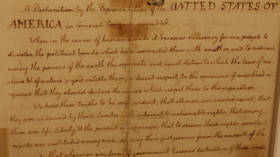 A Declaration by the Representatives of the UNITED STATES OF
AMERICA in General Congress assembled.
When in the course of human events it becomes necessary for one people to
dissolve the political bands which have connected them with another, and to assume
among the powers of the earth the separate and equal station to which the laws of na-
ture & of nature's god entitle them, a decent respect to the opinions of mankind
requires that they should declare the causes which impel them to the separation.
We hold these truths to be self evident: that all men are created equal; that
they are endowed by their Creator with inherent & inalienable rights; that among
these are life, liberty, & the pursuit of happiness; that to secure these rights, govern-
ments are instituted among men, deriving their just powers from the consent of the
that whenever any form of government becomes destructive of these ends